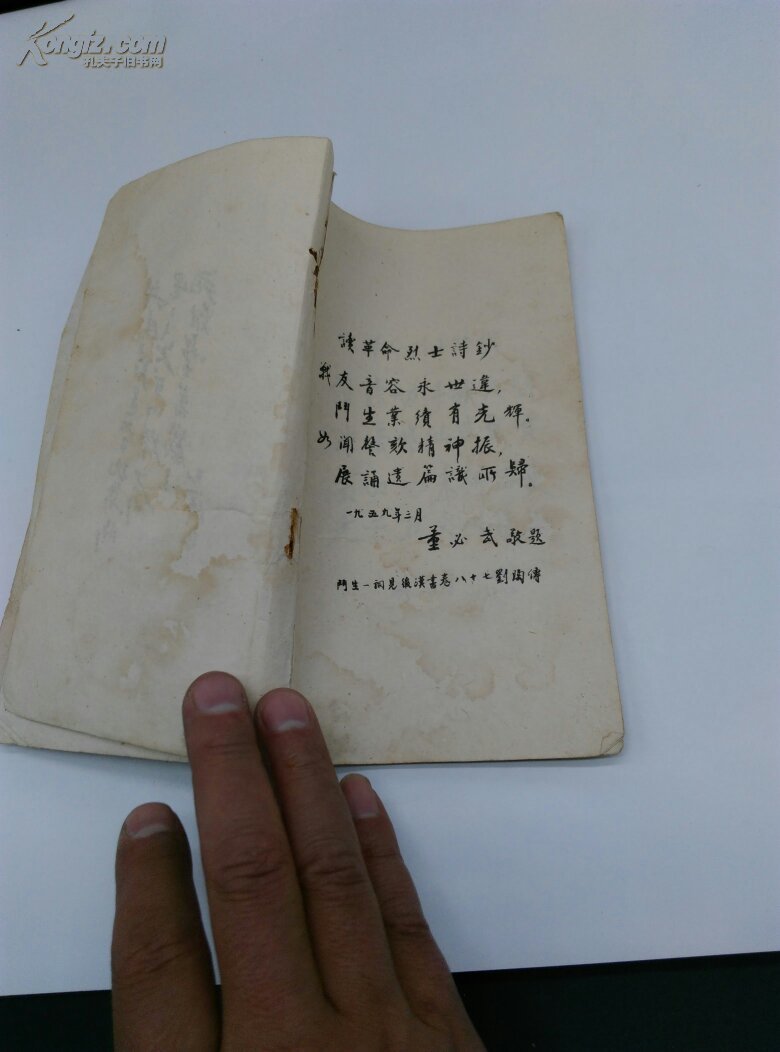 Kongfz.com
孔夫子旧书网
讀革命烈士詩鈔
戰友音容永世違，
鬥生業績有光輝。
如聞謦欬精神振，
展誦遺篇識所歸。
一九五九年三月
董必武敬題
鬥生一詞見後漢書卷八十七劉陶傳